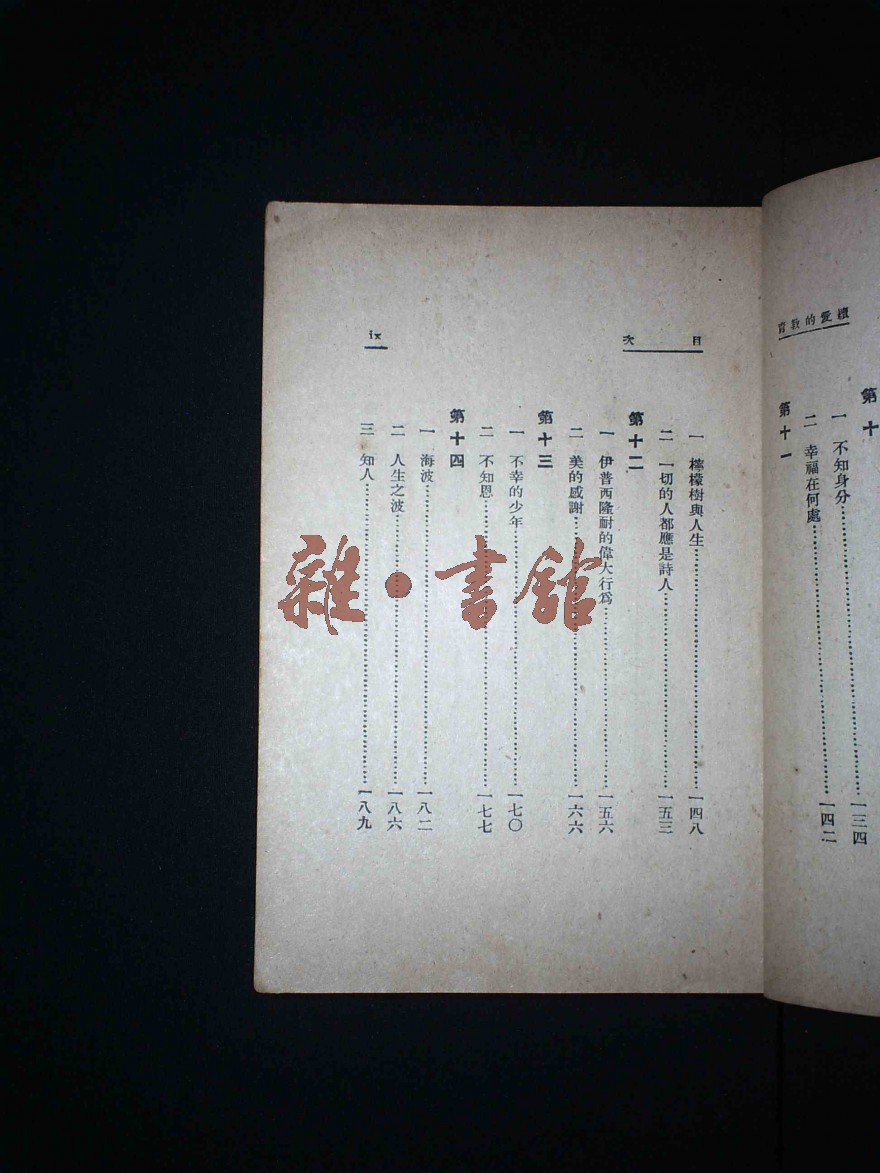 續愛的教育
第十
一　不知身分……………一三四
二　幸福在何處……………一四二
第十一
目次
一　檸檬樹與人生……………一四八
二　一切的人都應是詩人……………一五三
第十二
一　伊普西隆耐的偉大行爲……………一五六
二　美的感謝……………一六六
第十三
一　不幸的少年……………一七〇
二　不知恩……………一七七
第十四
一　海波……………一八二
二　人生之波……………一八六
三　知人……………一八九
ix
雜·書館